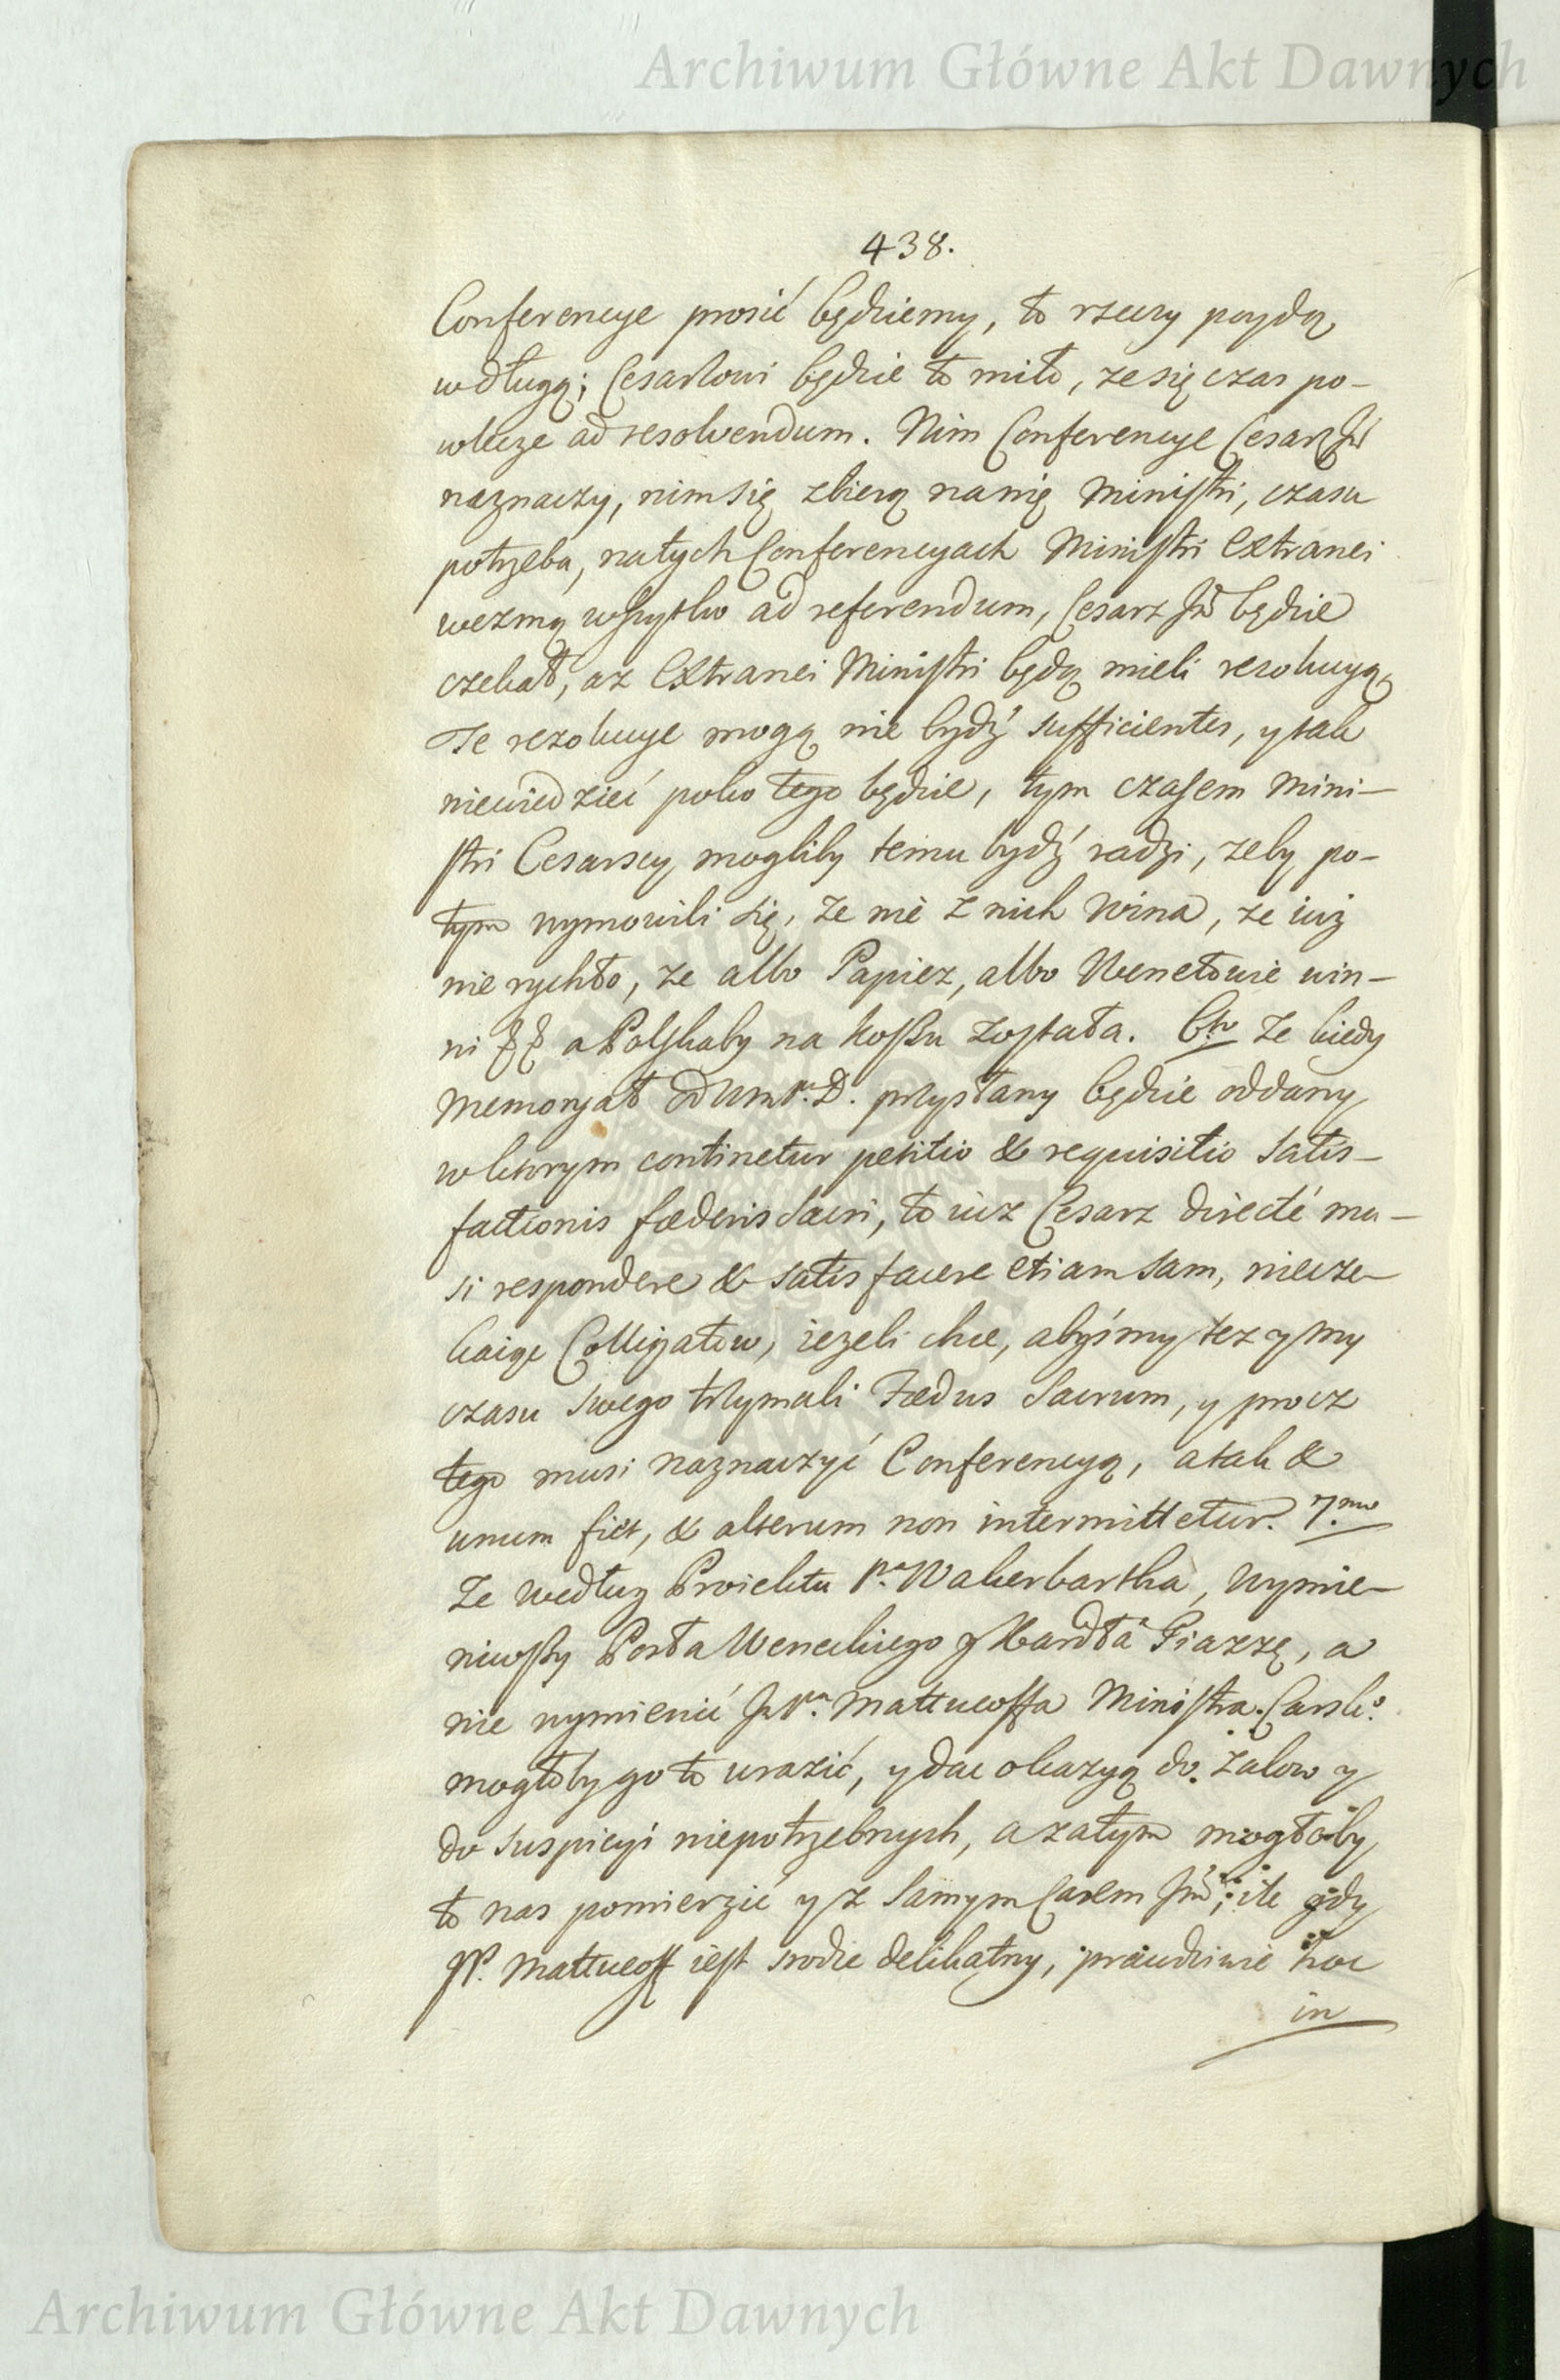 Archiwum Główne Akt Dawnych
438.
Conferencye prosić będziemy, to rzeczy poydą
wdługą; Cesarzowi będzie to miło, ze się czas po-
wlecze ad resolvendum. Nim Conferencye Cesarz Jmć
naznaczy, nim się zbiorą nanię Ministri, czasu
potrzeba, natych Conferencyach Ministri Extranei
wezmą wszystko ad referendum, Cesarz Jmć będzie
czekał, az Extranei Ministri będą mieli rezolucyą,
Te rezolucye mogą nie bydź sufficientes, y tak
niewiedzieć poko tego będzie, tym czasem Mini-
stri Cesarscy mogliby temu bydź radzi, zeby po-
tym wymowili się, ze nie z nich wina, ze iuz
nie rychło, ze albo Papiez, albo Wenetowie win-
ni aPolskaby na koszu została. 6to Ze kiedy
Memoryał od Wm Pa. D. przysłany będzie oddany
wktorym continetur petitio & requisitio satis-
factionis fœderis Sacri, to iuz Cesarz directé mu-
si respondere & satisfacere etiam sam, niecze-
kaiąc Colligatow, iezeli chce, abyśmy tez y my
czasu swego trzymali Fœdus Sacrum, y procz
tego musi naznaczyć Conferencyą, a tak &
unum fiet, & alterum non intermittetur. 7.mo
Ze według Proiektu Pa. Wakerbartha, wymie-
niwszy Posła Weneckiego y Kardła Piazzę, a
nie wymienić Jm Pa. Mattueoffa Ministra Carsko.
mogłoby go to urazić, y dac okazyą do zalow y
do suspicyi niepotrzebnych, a zatym mogłoby
to nas pomierzić y z samym Carem Jmć; ile gdy
JP. Mattueoff iest srodze delikatny, prawdziwie hoc
in
Archiwum Główne Akt Dawnych